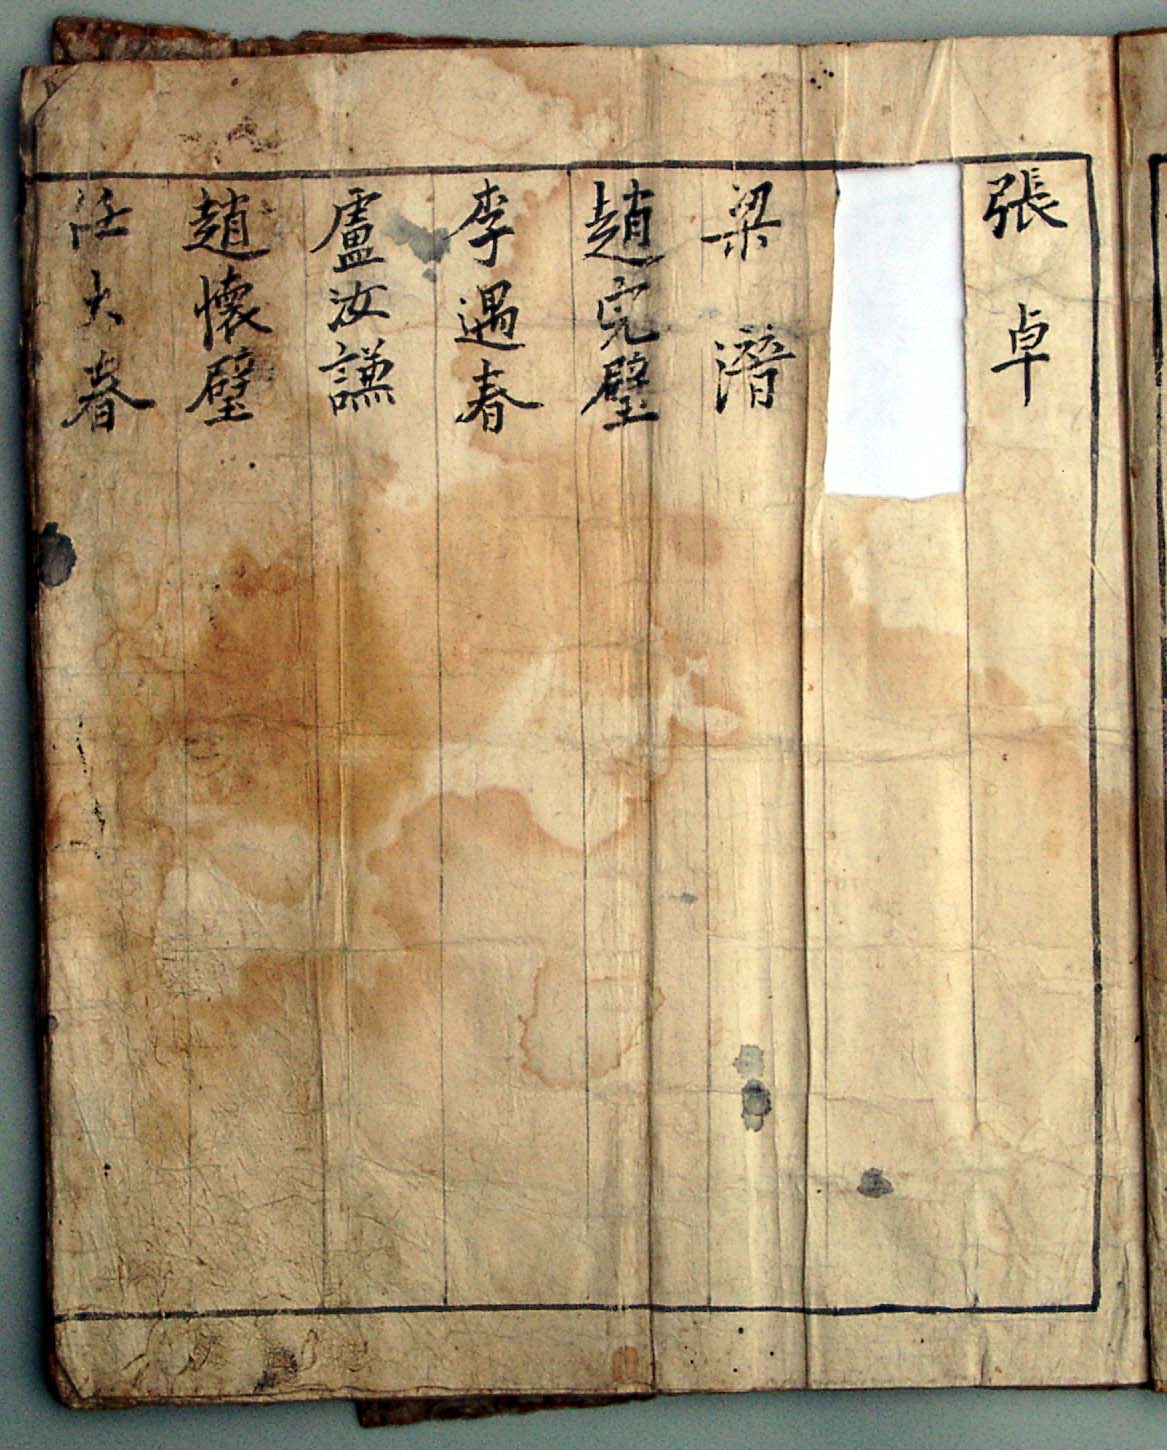 張卓
梁潛
趙完璧
李遇春
盧汝謙
趙懷璧
任大春